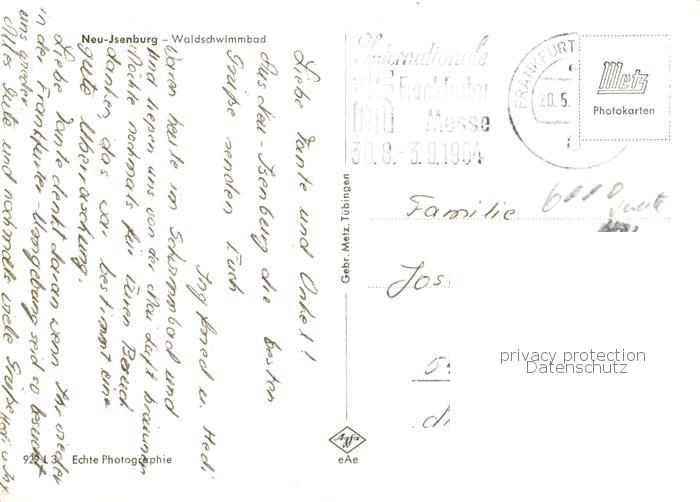 Neu-Jsenburg – Waldschwimmbad
Liebe Tante und Onkel!
Aus Neu-Isenburg die besten
Grüße senden Euch
Ingfried u. Hedi
Waren heute im Schwimmbad und
und ließen uns von der Mai Luft bräunen
Möchte nochmals für Euren Besuch
danken, das war bestimmt eine
gute Überraschung.
Liebe Tante denkt daran wenn Ihr wieder
in der Frankfurter-Umgebung seid so besucht
uns wieder
Alles Gute und nochmals viele Grüße Hedi u. Ing
929 L 3 Echte Photographie
Gebr. Metz, Tübingen
Agfa
eAe
Internationale
Frankfurter
Messe
30.8.-3.9.1964
FRANKFURT
20.5.
Metz
Photokarten
Familie
Jos
privacy protection
Datenschutz